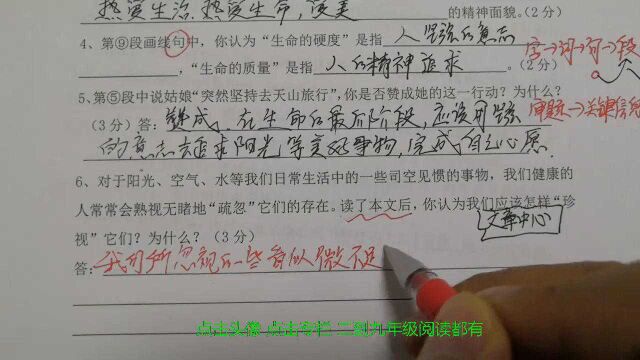 热爱生活,热爱生命,读美 的精神面貌。(2分)
4、第⑨段画线句中,你认为“生命的硬度”是指 人坚强的意志
,“生命的质量”是指 人的精神追求 。(2分)
字→词→句→段
5、第⑤段中说姑娘“突然坚持去天山旅行”,你是否赞成她的这一行动?为什么?
(3分)答:赞成,在生命的最后阶段,应该用坚强
审题→关键信息
的意志去追求阳光等美好事物,完成自己心愿.
6、对于阳光、空气、水等我们日常生活中的一些司空见惯的事物,我们健康的
人常常会熟视无睹地“疏忽”它们的存在。读了本文后,你认为我们应该怎样“珍
视”它们?为什么?(3分)
文章中心
答:我们所忽视的一些看似微不足
点击头像 点击专栏 二到九年级阅读都有